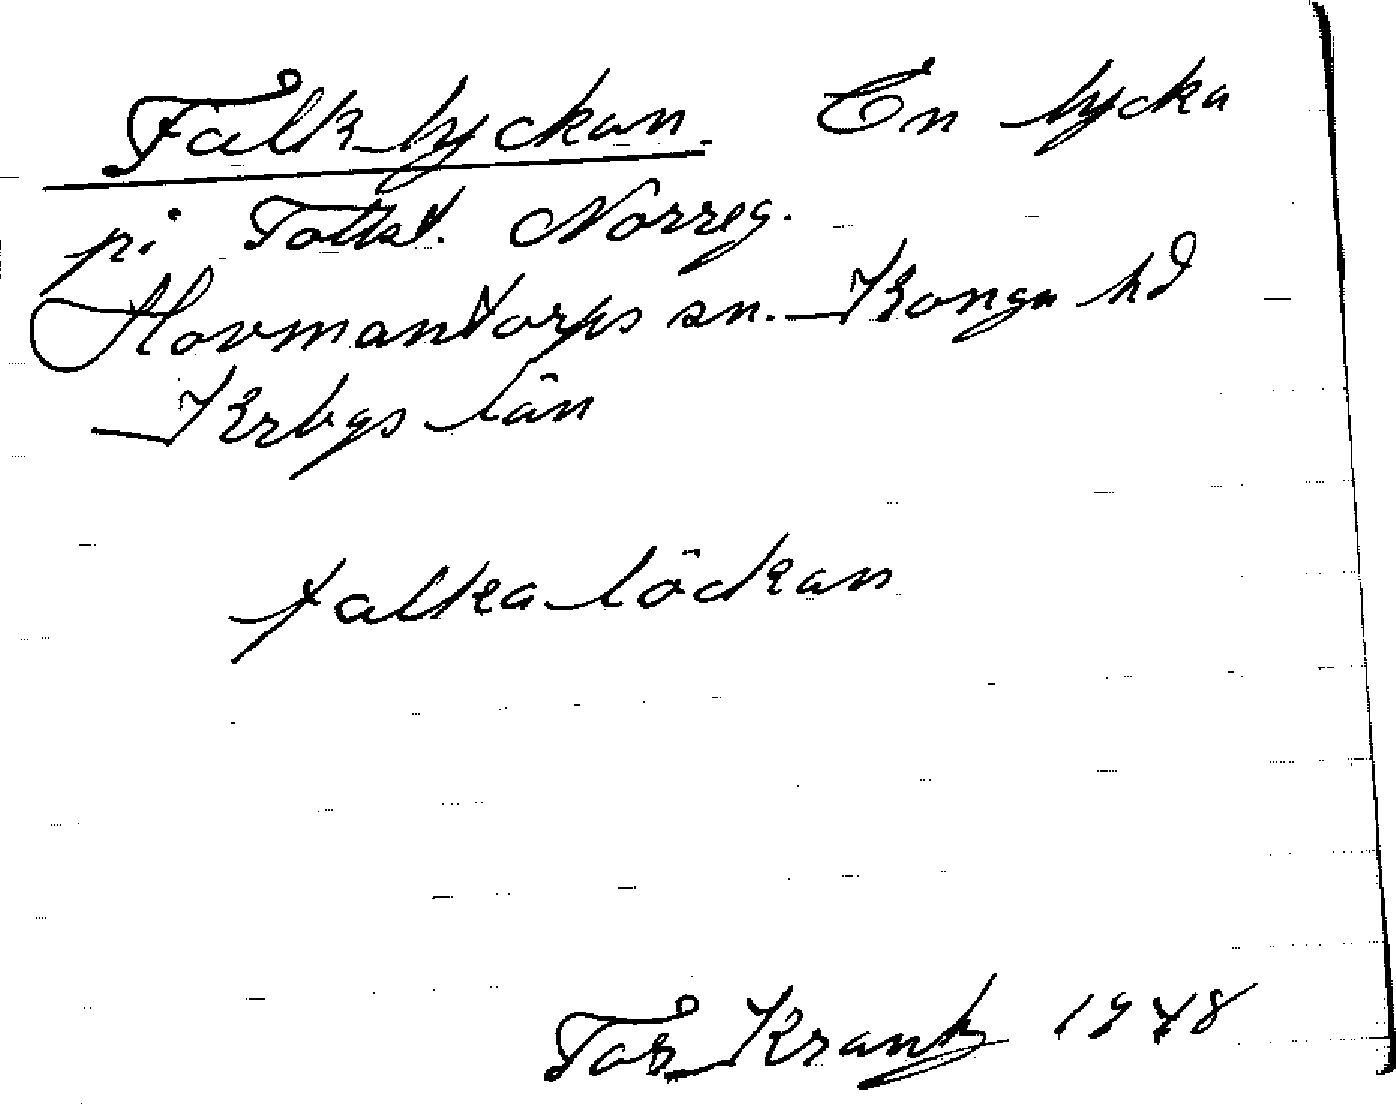 Falklyckan. En lycka
på Tottst. Norreg.
Hovmantorps sn. Konga hd
Krbgs län
falkalöckan
Tor Krantz 1948